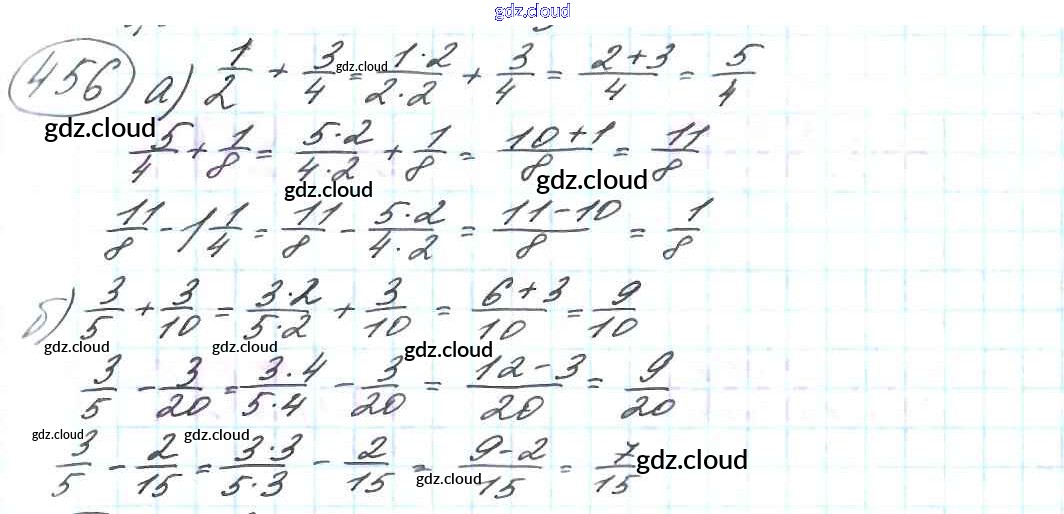 gdz.cloud
456 а) 1/2 + 3/4 = 1·2/2·2 + 3/4 = 2+3/4 = 5/4
gdz.cloud
gdz.cloud
5/4 + 1/8 = 5·2/4·2 + 1/8 = 10+1/8 = 11/8
gdz.cloud
gdz.cloud
11/8 - 1 1/4 = 11/8 - 5·2/4·2 = 11-10/8 = 1/8
б) 3/5 + 3/10 = 3·2/5·2 + 3/10 = 6+3/10 = 9/10
gdz.cloud
gdz.cloud
gdz.cloud
3/5 - 3/20 = 3·4/5·4 - 3/20 = 12-3/20 = 9/20
gdz.cloud
gdz.cloud
3/5 - 2/15 = 3·3/5·3 - 2/15 = 9-2/15 = 7/15
gdz.cloud
gdz.cloud